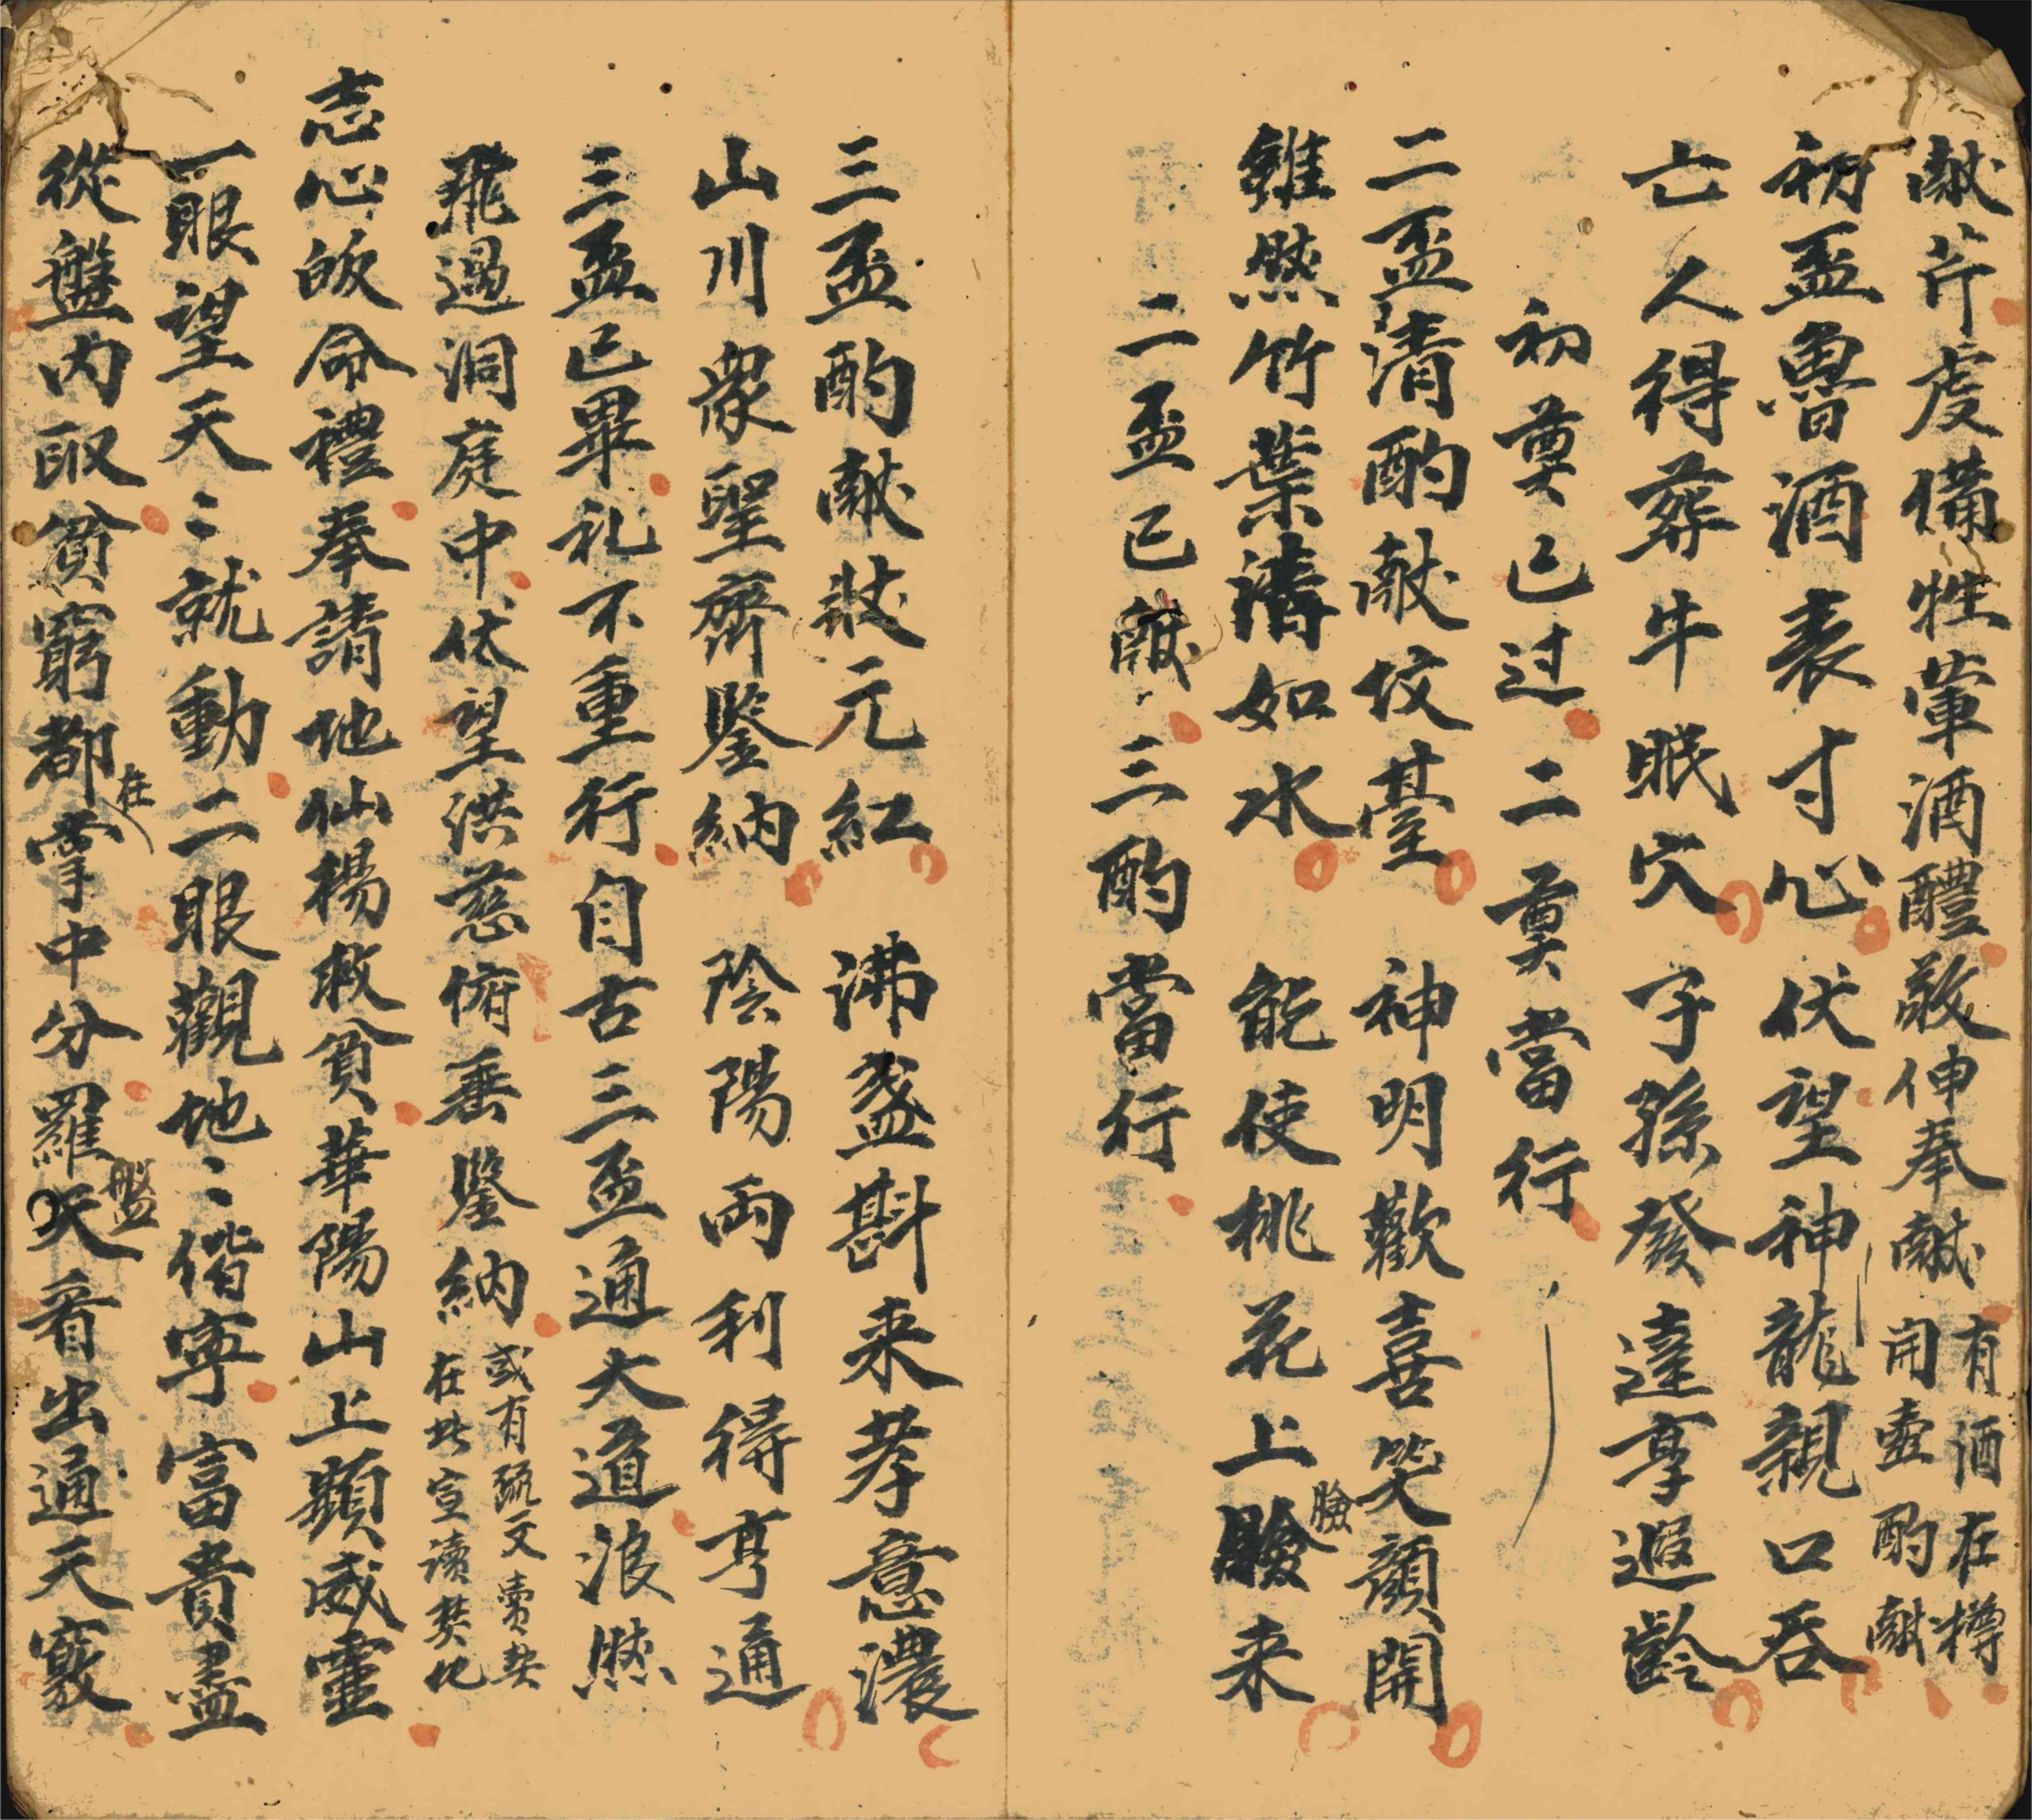 献芹虔備牲葷酒醴敬伸奉献有酒在樽開壺酌献
初盃魯酒表寸心伏望神龍親口吞
亡人得葬牛眠穴子孫發達享遐齡
初奠已过二奠當行
二盃清酌献坟臺神明歡喜笑顔開
雖然竹葉濤如水能使桃花上臉臉来
二盃已献三酌當行
三盃酌献狀元紅沸盞斟来孝意濃
山川眾聖齊鑒納陰陽両利得亨通
三盃已畢礼不重行自古三盃通大道浪然
飛過洞庭中伏望洪慈俯垂鑒納或有疏文賣契在此宣讀焚化
志心皈命禮奉請地仙楊救貧華陽山上顯威靈
一眼望天〻就動二眼觀地〻偕寧富貴盡
從盤内取貧窮都在掌中分羅盤看出通天竅